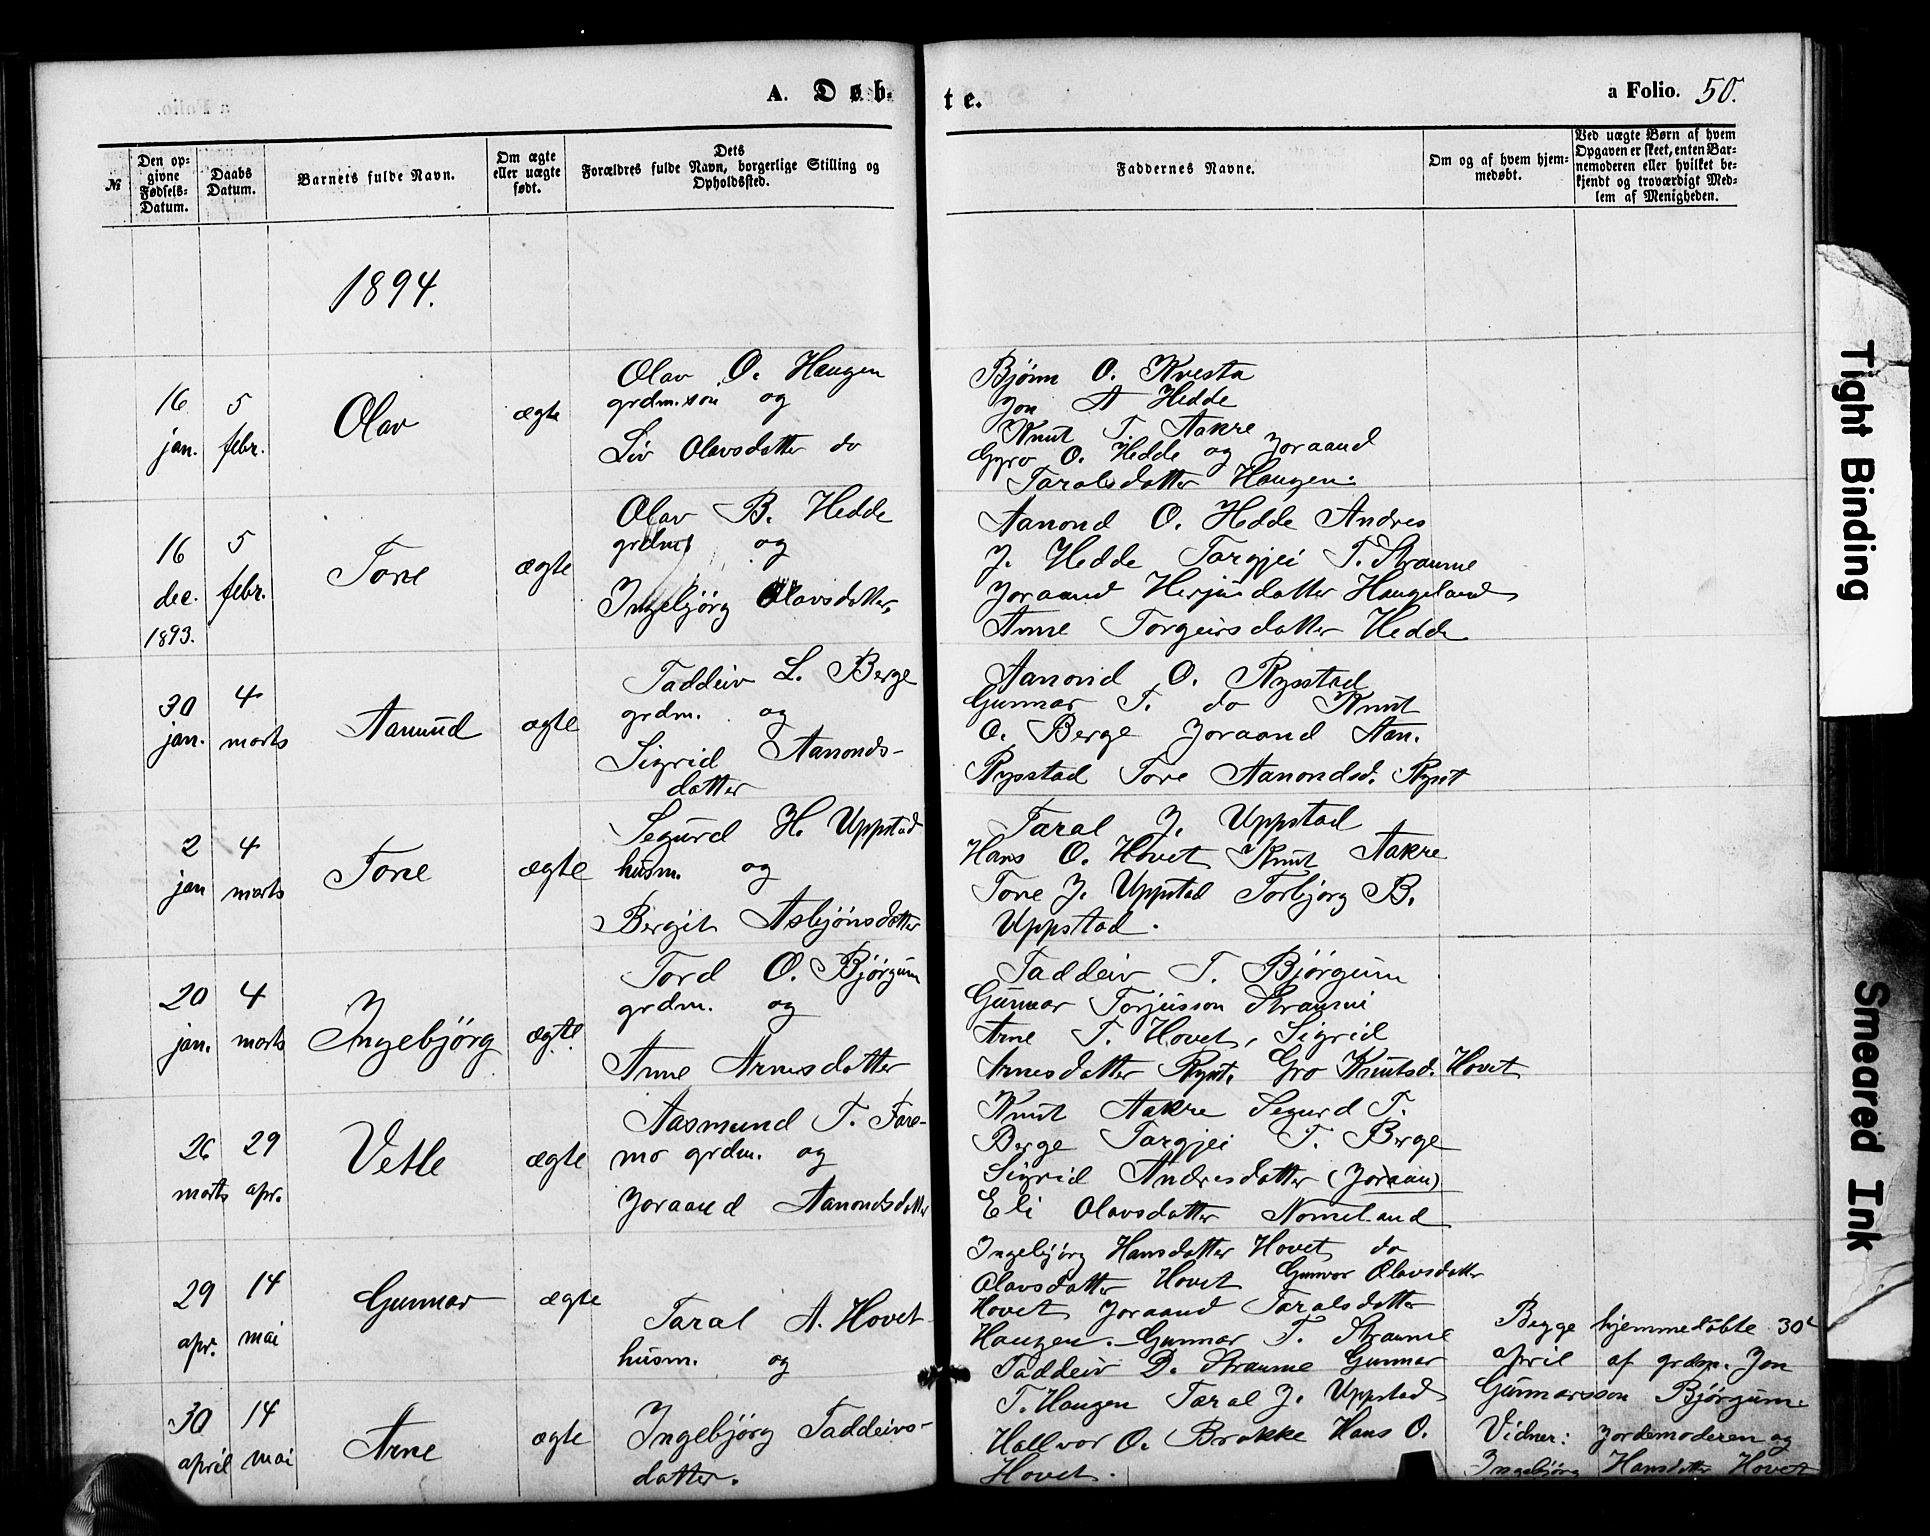 A. Døb-
te.
a Folio. 50.
№
Den op-
givne
Fødsels-
Datum.
Daabs
Datum.
Barnets fulde Navn.
Om ægte
eller uægte
født.
Dets
Forældres fulde Navn, borgerlige Stilling og
Opholdssted.
Faddernes Navne.
Om og af hvem hjem-
medøbt.
Ved uægte Børn af hvem
Opgaven er skeet, enten Bar-
nemoderen eller hvilket be-
kjendt og troværdigt Med-
lem af Menigheden.
1894.
16
jan.
5
febr.
Olav
ægte
Olav O. Haugen
grdm.son og
Liv Olavsdatter do
Bjónn O. Kvesta
Jon A Hedde
Knut T. Aakre
Gyro O. Hedde og Joraand
Taralsdatter Haugen.
16
dec.
1893.
5
febr.
Tone
ægte
Olav B. Hedde
grdm. og
Ingebjörg Olavsdatter
Aanond O. Hedde Andres
J. Hedde Targjei T. Straume
Joraand Herjusdatter Haugeland
Anne Torgeirsdatter Hedde
30
jan.
4
marts
Aamund
ægte
Taddeiv L. Berge
grdm. og
Sigrid Aanonds-
datter
Aanond O. Rysstad
Gunnar T. do Knut
O. Berge Joraand Aan.
Rysstad Tore Aanondsd. Ryst
2
jan
4
marts
Tone
ægte
Segurd H. Uppstad
husm. og
Bergit Asbjönsdatter
Taral J. Uppstad
Hans O. Hovet Knut Aakre
Tone J. Uppstad Torbjorg B.
Uppstad.
20
jan.
4
marts
Ingebjörg
ægte
Tord O. Bjórgum
grdm. og
Anne Arnesdatter
Taddeiv T. Bjórgum
Gunnar Torjusson Straume
Arne T. Hovet, Sigrid
Arnesdatter Ryst. Gro Knutsd. Hovet
26
marts
29
apr.
Vetle
ægte
Aasmund T. Fare-
mo grdm. og
Joraand Aanondsdatter
Knut Aakre Segurd T.
Berge Targjei T. Berge
Sigrid Andresdatter (Joraan)
Eli Olavsdatter Nomeland
29
apr.
14
mai
Gunnar
ægte
Taral A. Hovet
husm. og
Ingebjörg Hansdatter Hovet do
Olavsdatter Hovet Gunvor Olavsdatter
Hovet Joraand Taralsdatter
Haugen. Gunnar T. Straume
Taddeiv D. Straume Gunnar
Begge hjemmedöbte 30
april af grdm. Jon
30
april
14
mai
Arne
ægte
Ingebjörg Taddeivs-
datter.
T. Haugen Taral J. Uppstad
Hallvor O. Brokke Hans O.
Hovet.
Gunnarsson Bjórgum.
Vidner: Jordemoderen og
Ingebjörg Hansdatter Hovet
Tight Binding
Smeared Ink